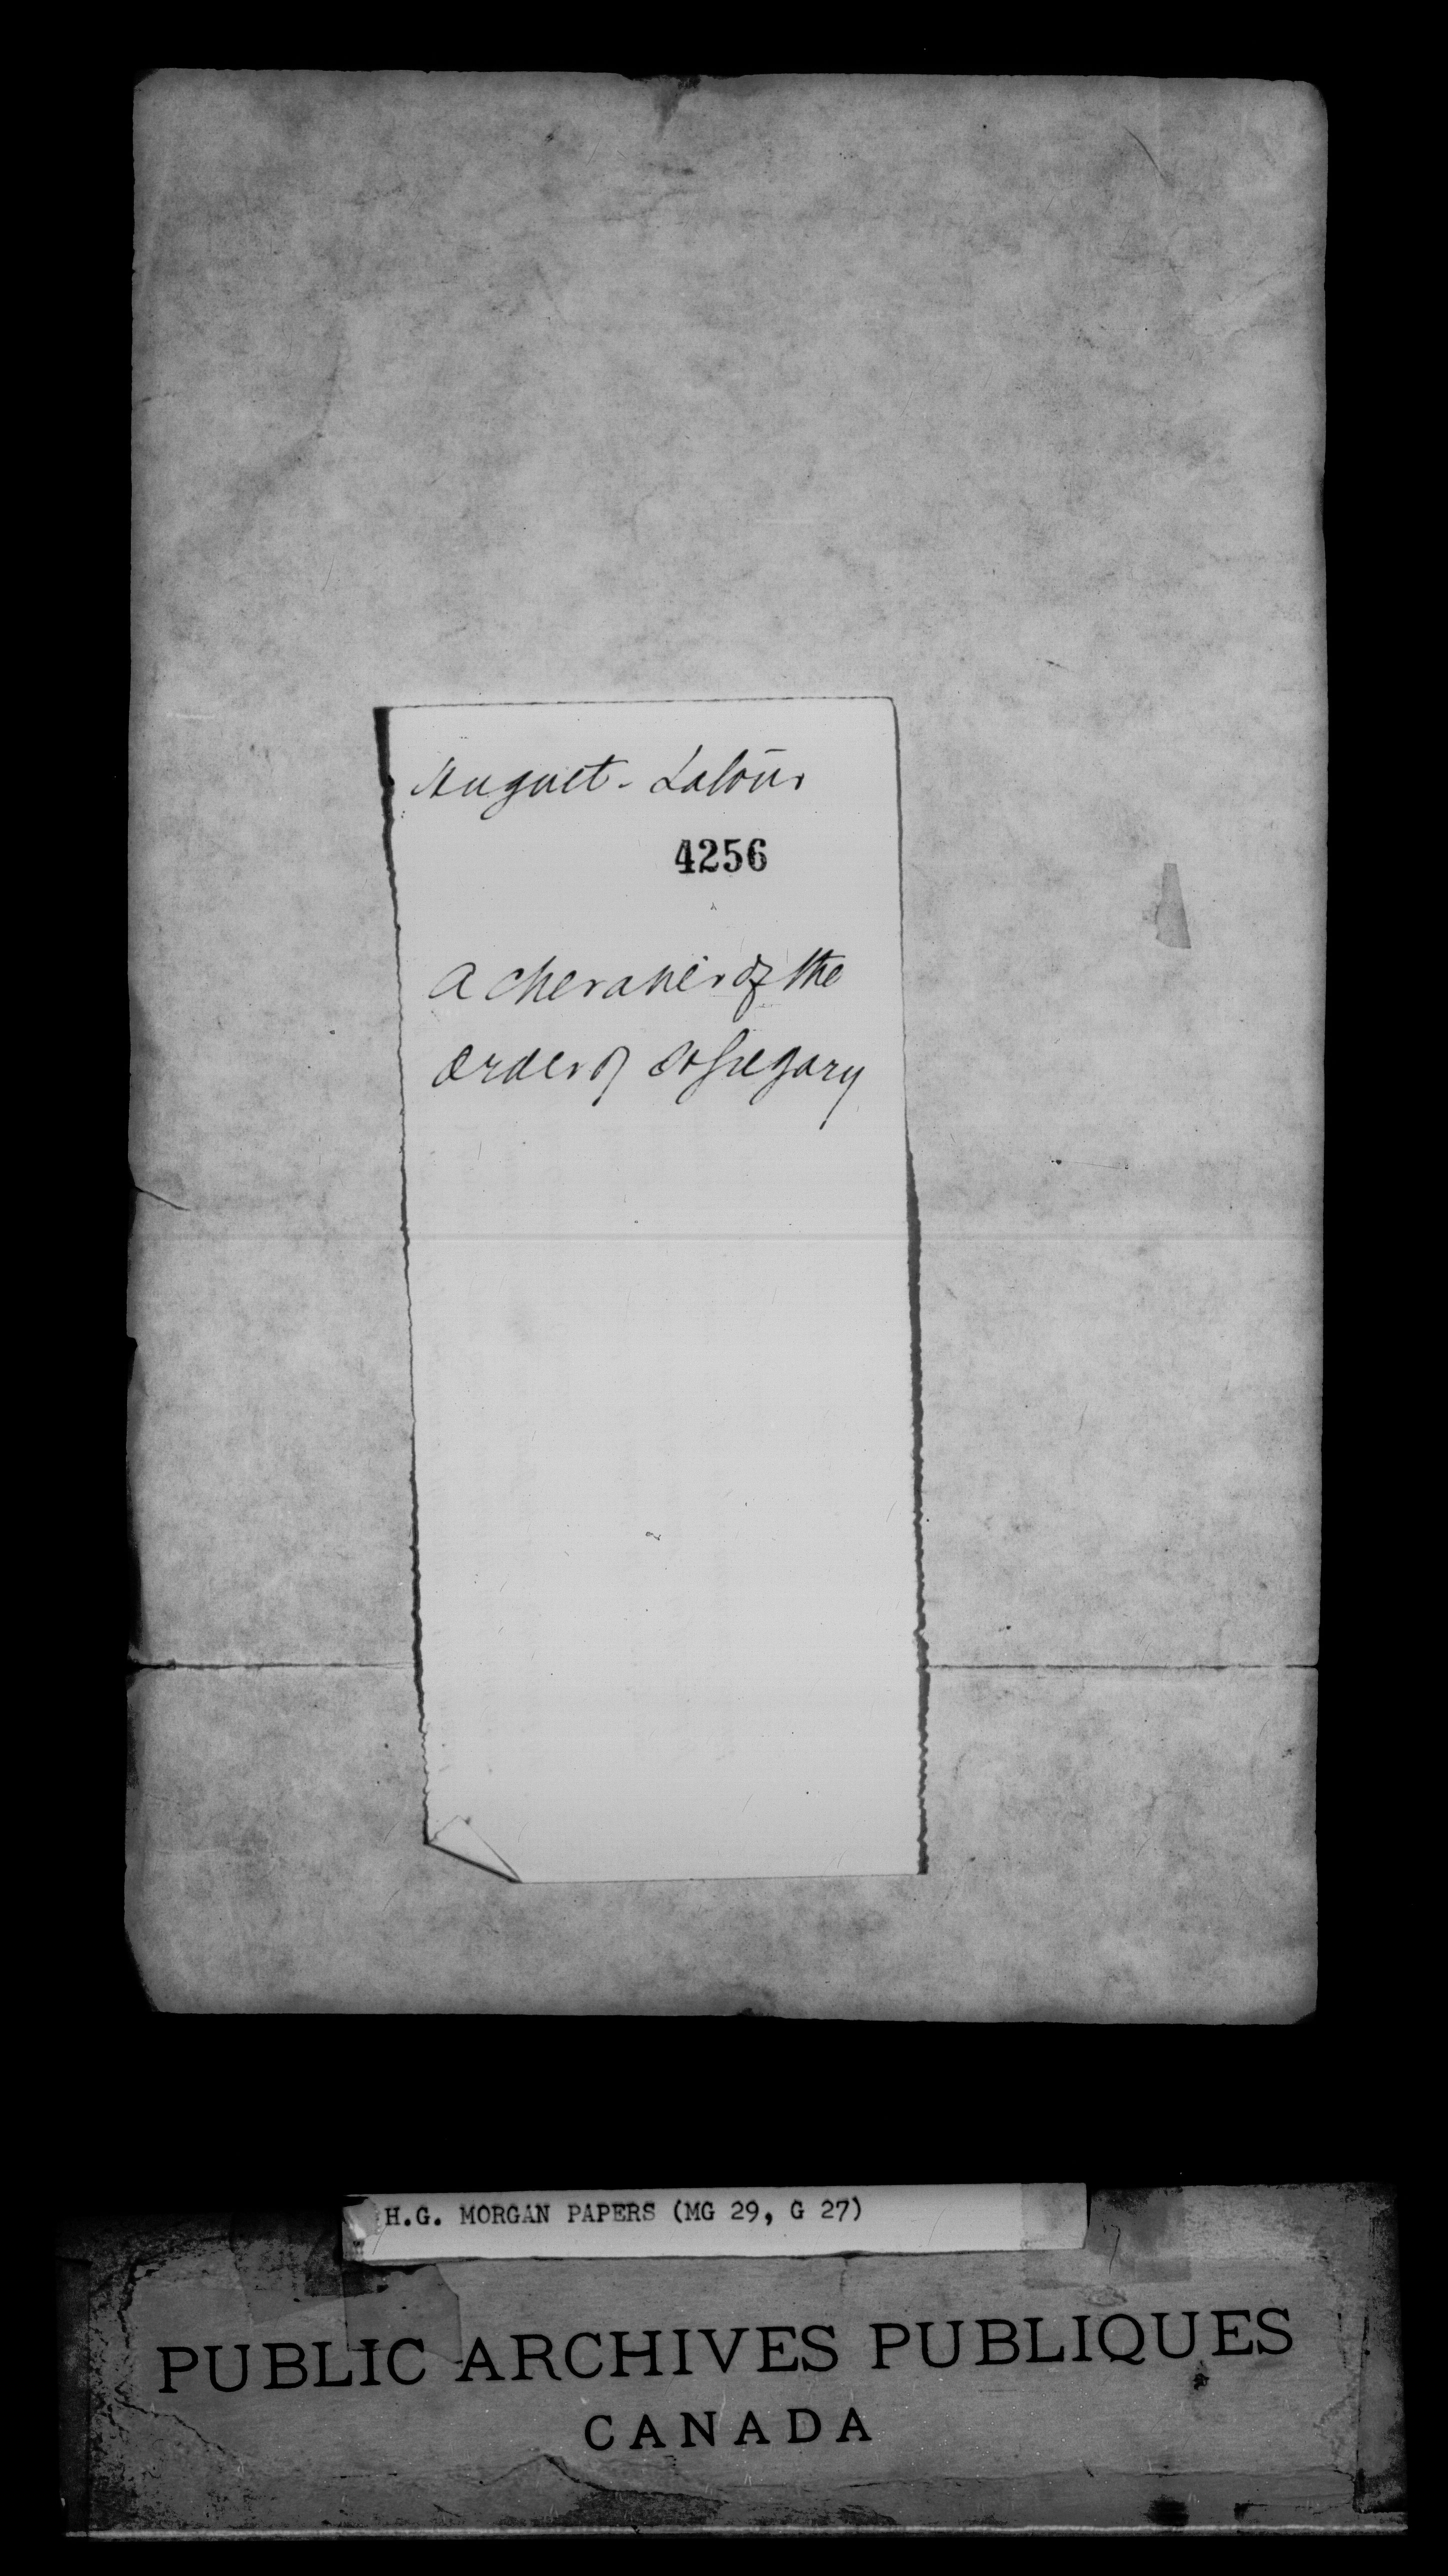 Huguet-Latour
4256
A Chevalier of the
Order of St Gregory
H.G. MORGAN PAPERS (MG 29, G 27)
PUBLIC ARCHIVES PUBLIQUES
CANADA